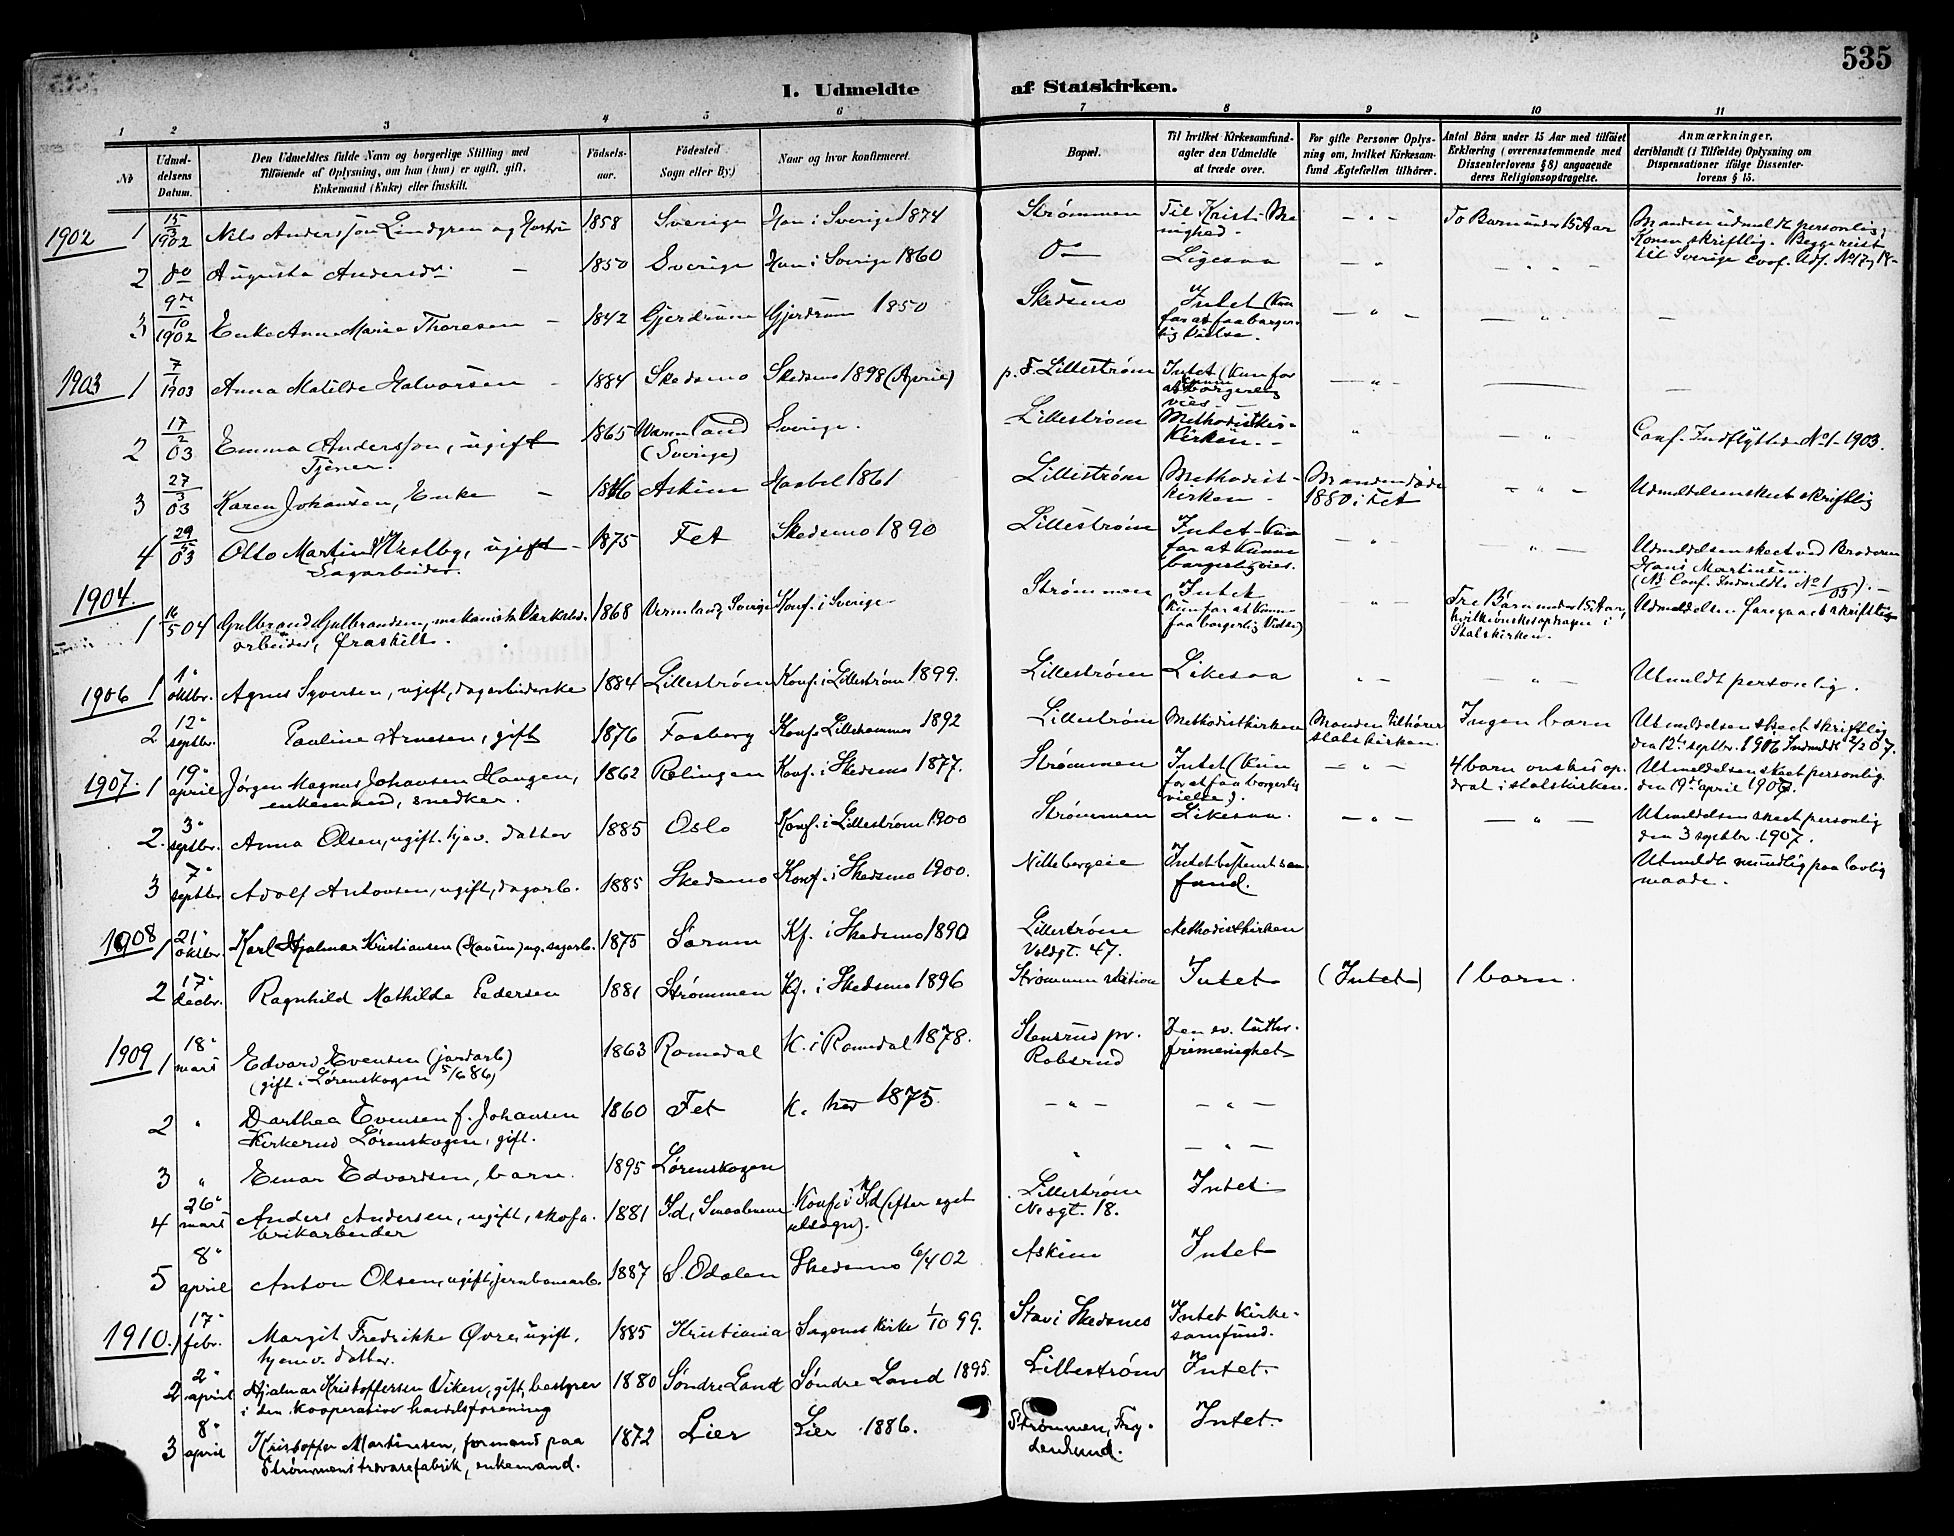 535
I. Udmeldte af Statskirken.
1 2 3 4 5 6 7 8 9 10 11
No
Udmeldelsens Datum.
Den Udmeldtes fulde Navn og borgerlige Stilling med Tilføiende af Oplysning, om han (hun) er ugift, gift, Enkemand (Enke) eller fraskilt.
Fødselsaar.
Fødested Sogn eller By.)
Naar og hvor konfirmeret.
Bopæl.
Til hvilket Kirkesamfund agter den Udmeldte at træde over.
For gifte Personer Oplysning om, hvilket Kirkesamfund Ægtefællen tilhører.
Antal Børn under 15 Aar med tilføiet Erklæring (overensstemmende med Dissenterlovens § 8) angaaende deres Religionsopdragelse.
Anmærkninger, deriblandt (i Tilfælde) Oplysning om Dispensationer ifølge Dissenterlovens § 15.
1902 1 15/3 1902 Nils Andersson Lindgren og Hustru 1858 Sverige Han i Sverige 1874 Strømmen Til Krist. Menighed. — " — To Barn under 15 Aar Manden udmeldt personlig; Konen skriftlig. Begge reist til Sverige
2 do Augusta Andersdr. — 1850 Sverige Hun i Sverige 1860 do Ligesaa — " — " —
3 9de/10 1902 Enke Anne Marie Thoresen — 1842 Gjerdrum Gjerdrum 1850 Skedsmo Intet (Kun for at faa borgerlig Vielse. — " — — " — —
1903 1 7/1 1903 Anna Matilde Halvorsen - 1884 Skedsmo Skedsmo 1898 (April) p. t. Lillestrøm Intet (Kun for at kunne borgerlig vies — " — — —
2 17/2 03 Emma Andersson, ugift Tjener. 1865 Wermland (Sverige) Sverige. Lillestrøm Methodistkirken. - " — " — Conf. Indflyttede No 1 - 1903.
3 27/3 03 Karen Johansen, Enke - 1846 Askim Haabøl 1861 Lillestrøm Methodistkirken - Manden døde 1880 i Fet — " — Udmeldelsen skeet skriftlig
4 29/5 03 Otto Martin Vestby, ugift - Sagarbeider. 1875 Fet Skedsmo 1890 Lillestrøm Intet - Kun for at kunne borgerlig vies. — " — — " — Udmeldelsen skeet ved Broderen Hans Martinsen. (NB Conf. Indmeldte No 1/03).—
1904. 1 16/5 04 Gulbrand Gulbrandsen, mekanisk Værksteds arbeider, fraskilt. 1868 Vermland, Sverige Konf. i Sverige - Strømmen Intet (Kun for at kunne faa borgerlig Vielse) — " — Tre Børn under 15 Aar, hvilke ønskes opdragne i Statskirken. Udmeldelsen foregaaet skriftlig
1906 1 1" oktbr. Agnes Syversen, ugift, dagarbeiderske 1884 Lillestrøm Konf. i Lillestrøm 1899. Lillestrøm Likesaa " — — " — Utmeldt personlig.
2 12" septbr. Pauline Arnesen, gift 1876 Faaberg Konf. Lillehammer 1892 Lillestrøm Methodistkirken Manden tilhører statskirken. Ingen barn Utmeldelsen skeet skriftlig den 12te septbr. 1906 Indmeldt 2/2 07.
1907. 1 19" april Jørgen Magnus Johansen Haugen, enkemand, snedker. 1862 Rælingen Konf. i Skedsmo 1877. Strømmen Intet (Kun for at faa borgerlig vielse). — " — 4 barn ønskes opdrat i statskirken. Utmeldelsen skeet personlig den 19de april 1907.
2. 3" septbr. Anna Olsen, ugift. hjv. datter 1885 Oslo Konf. i Lillestrøm 1900 Strømmen Likesaa. — " — — " — Utmeldelsen skeet personlig den 3 septbr. 1907.
3 7" septbr Adolf Antonsen, ugift, dagarb. 1885 Skedsmo Konf. i Skedsmo 1900. Nittebergeie Intet bestemt samfund. Utmeldt mundtlig paa lovlig maade.
1908 1 21" oktbr. Karl Hjalmar Kristiansen (Hansen) ug. sagarb. 1875 Sørum Kf. i Skedsmo 1890 Lillestrøm Voldgt. 47. Methodistkirken
2 17" decbr. Ragnhild Mathilde Pedersen 1881 Strømmen Kf. i Skedsmo 1896 Strømmen station Intet (Intet) 1 barn.
1909 1 18" mars Edvard Evensen (jordarb) (gift i Lørenskogen 5/6 86) 1863 Romedal K. i Romedal 1878. Stensrud pr. Robsrud Den ev. luth. frimenighet
2 " Dorthea Evensen f. Johansen Kirkerud Lørenskogen, gift. 1860 Fet K. her 1875. — " — — " —
3 " Einar Edvardsen, barn. 1895 Lørenskogen " — " —
4 26" mars Anders Andersen, ugift, skofabrikarbeider 1881 Id, Smaalenene Konf. i Id (efter eget utsagn). Lillestrøm Nesgt. 18. Intet
5 8" april Anton Olsen, ugift, jernbanearb. 1887 S. Odalen Skedsmo 6/4 02 Askim Intet
1910. 1 17" febr. Margit Fredrikke Øvre, ugift, hjemv. datter. 1885 Kristiania Sagenes kirke 1/10 99. Stav i Skedsmo Intet kirkesamfund.
2 2" april Hjalmar Kristoffersen Viken, gift, bestyrer i den kooperative handelsforening 1880 Søndre Land Søndre Land 1895. Lillestrøm Intet.
3 8" april Kristoffer Martinsen, formand paa Strømmens trævarefabrik, enkemand. 1872 Lier Lier 1886. Strømmen, Frydenlund. Intet.